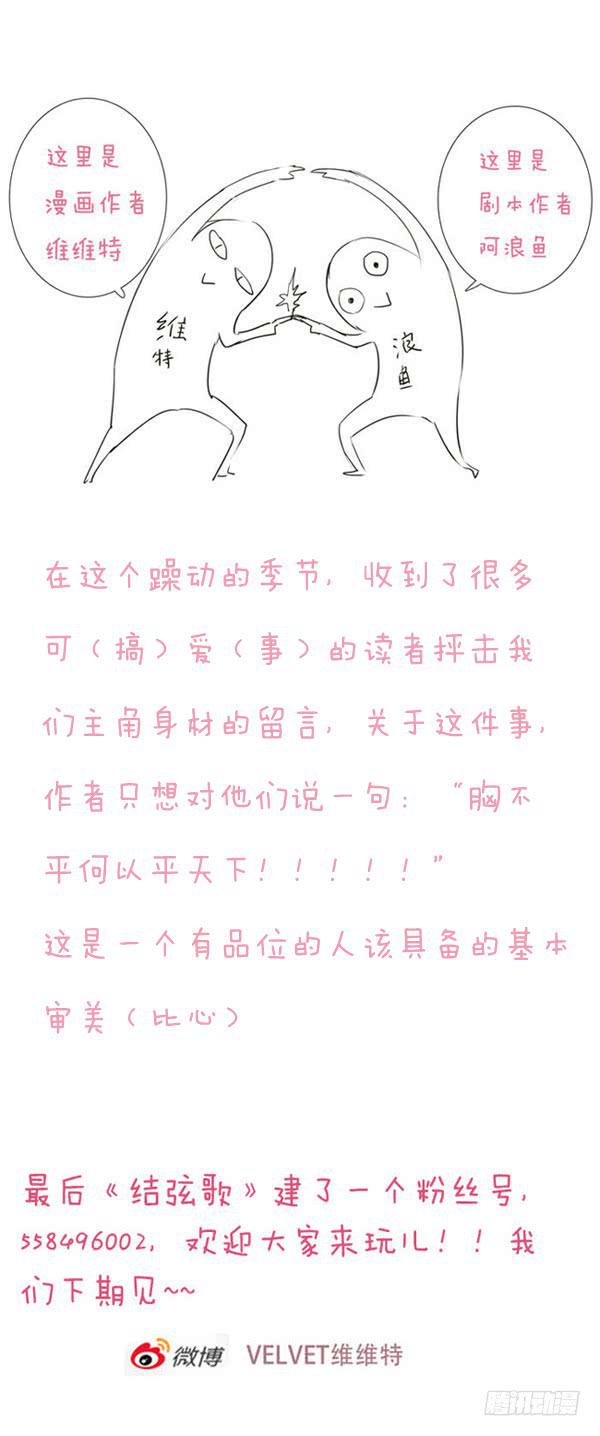 这里是
漫画作者
维维特
这里是
剧本作者
阿浪鱼
維
特
浪
鱼
在这个躁动的季节，收到了很多
可（搞）爱（事）的读者抨击我
们主角身材的留言，关于这件事，
作者只想对他们说一句：“胸不
平何以平天下！！！！！”
这是一个有品位的人该具备的基本
审美（比心）
最后《结弦歌》建了一个粉丝号，
558496002，欢迎大家来玩儿！！我
们下期见~~
微博 VELVET维维特
腾讯动漫